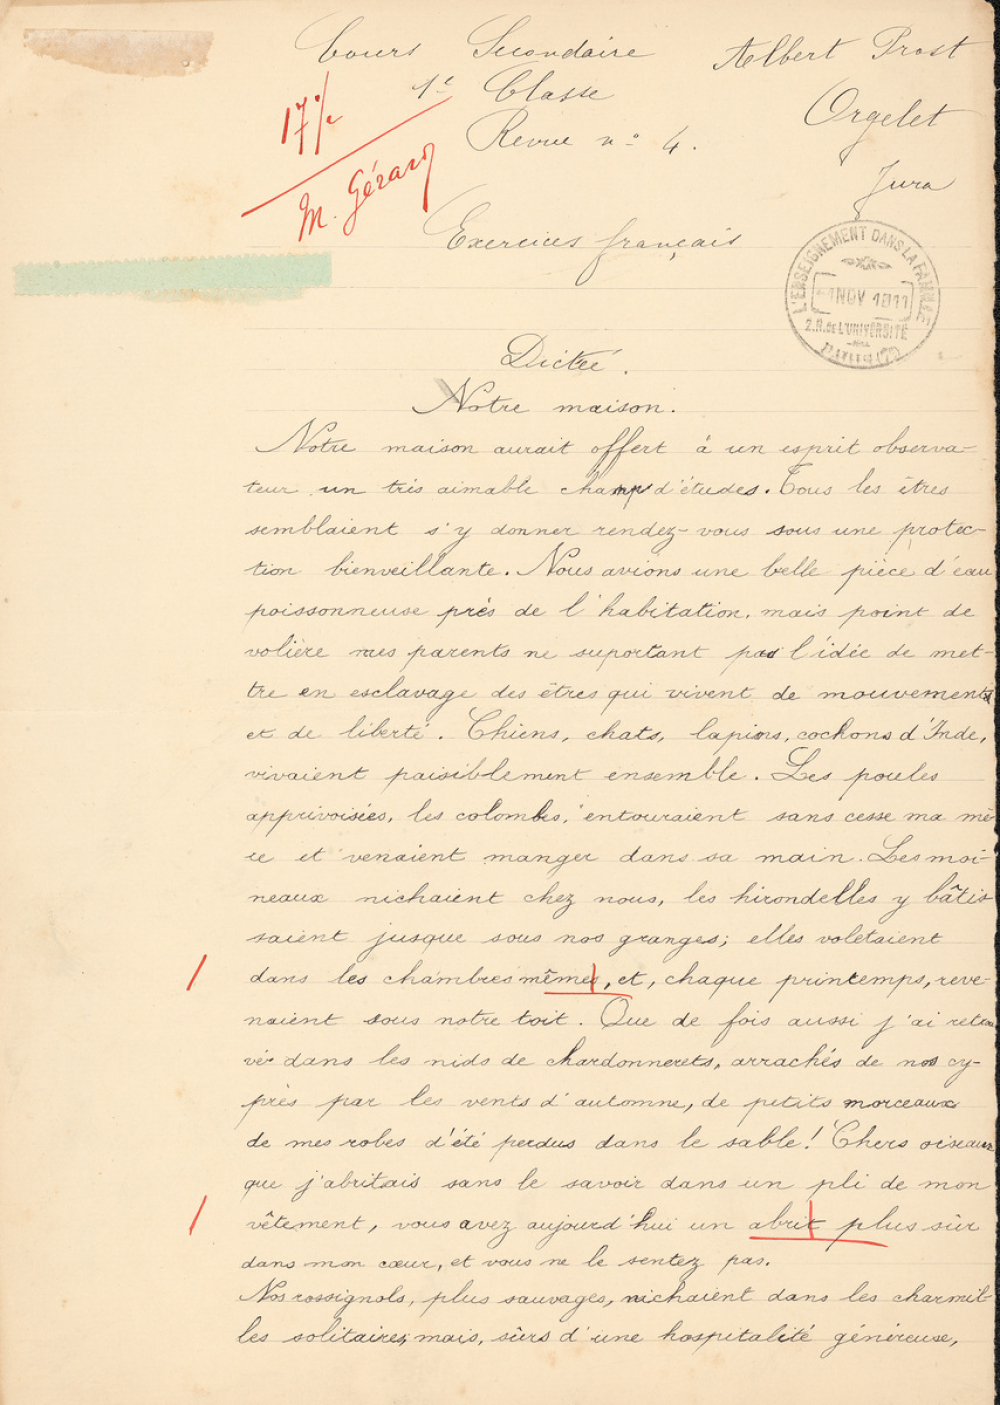 Cours Secondaire
Albert Prost
1e Classe
Orgelet
17
Revue n° 4.
Jura
M. Gérard
Exercices français
L'ENSEIGNEMENT DANS LA FAMILLE
NOV 1911
2.R. de L'UNIVERSITÉ
Dictée.
Notre maison.
Notre maison aurait offert à un esprit observa-
teur un très aimable champ d'études. Tous les êtres
semblaient s'y donner rendez-vous sous une protec-
tion bienveillante. Nous avions une belle pièce d'eau
poissonneuse près de l'habitation, mais point de
volière mes parents ne suportant pas l'idée de met-
tre en esclavage des êtres qui vivent de mouvement
et de liberté. Chiens, chats, lapins, cochons d'Inde,
vivaient paisiblement ensemble. Les poules
apprivoisées, les colombes, entouraient sans cesse ma mè-
re et venaient manger dans sa main. Les moi-
neaux nichaient chez nous, les hirondelles y bâtis
saient jusque sous nos granges; elles voletaient
dans les chambres mêmes, et, chaque printemps, reve-
naient sous notre toit. Que de fois aussi j'ai retrou
vé dans les nids de chardonnerets, arrachés de nos cy-
près par les vents d'automne, de petits morceaux
de mes robes d'été perdus dans le sable! Chers oiseaux
que j'abritais sans le savoir dans un pli de mon
vêtement, vous avez aujourd'hui un abrit plus sûr
dans mon cœur, et vous ne le sentez pas.
Nos rossignols, plus sauvages, nichaient dans les charmil-
les solitaires, mais, sûrs d'une hospitalité généreuse,